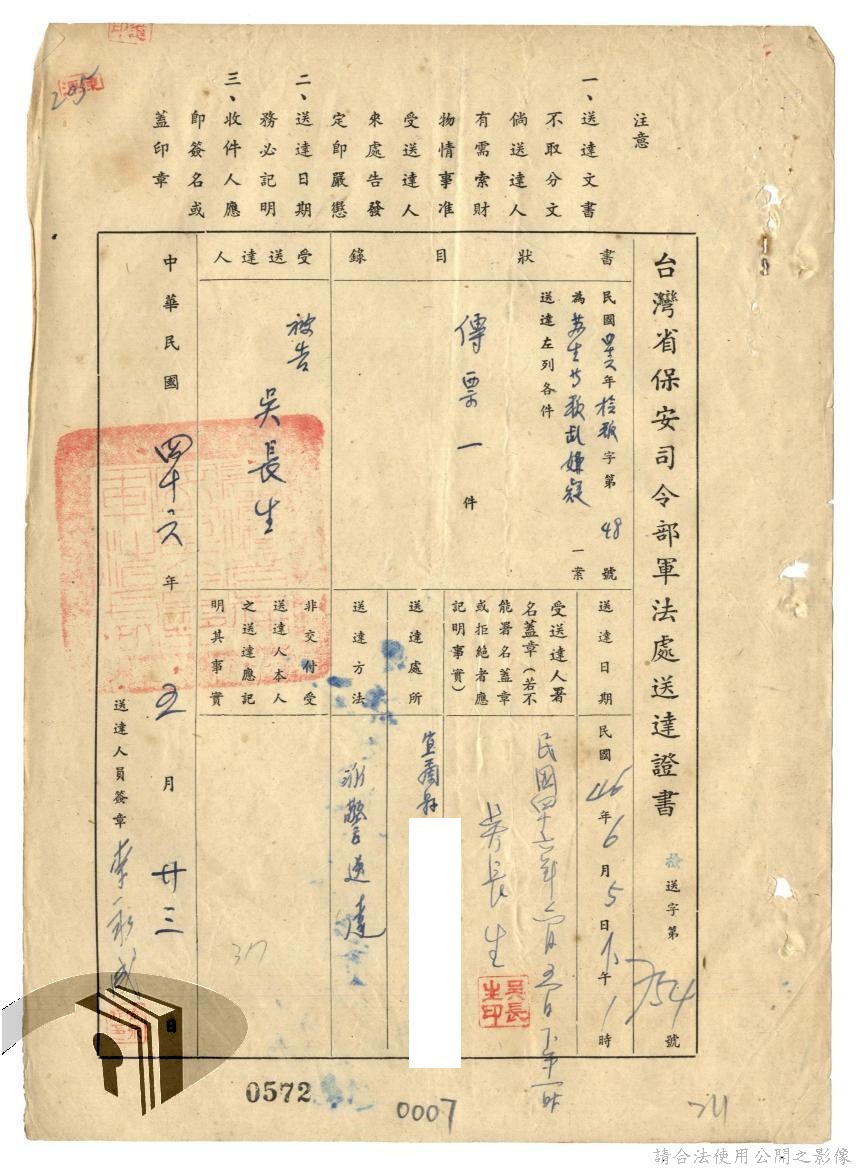 注意
一、送達文書
不取分文
倘送達人
有需索財
物情事准
受送達人
來處告發
定即嚴懲
二、送達日期
務必記明
三、收件人應
即簽名或
蓋印章
台灣省保安司令部軍法處送達證書 送字第754號
書狀目錄
民國四六年 字第48號
為 叛亂嫌疑一案
送達左列各件
傳票一件
受送達人
被告 吳長生
送達日期
民國46年6月5日下午1時
受送達人署
名蓋章(若不
能署名蓋章
或拒絕者應
記明事實)
民國四十六年六月五日下午一時
吳長生
吳長生印
送達處所
宜蘭縣
送達方法
派警送達
非交付受
送達人本人
之送達應記
明其事實
317
中華民國四十六年五月廿三日
送達人員簽章
205
0572
0007
請合法使用公開之影像